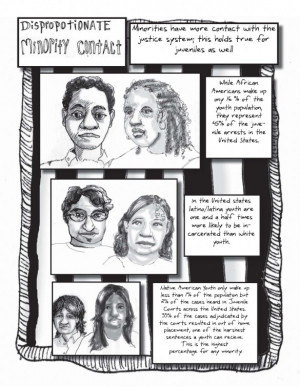 DISPROPOTIONATE
MINORITY CONTACT
Minorities have more contact with the
justice system; this holds true for
juveniles as well
While African
Americans make up
only 16 % of the
youth population,
they represent
45% of the juve-
nile arrests in the
United States.
In the United states
latino/latina youth are
one and a half times
more likely to be in-
carcerated than white
youth.
Native American Youth only make up
less than 1% of the population but
2% of the cases heard in Juvenile
Courts across the United States.
33% of the cases adjudicated by
the courts resulted in out of home
placement, one of the harshest
sentences a youth can recieve.
This is the highest
percentage for any minority.